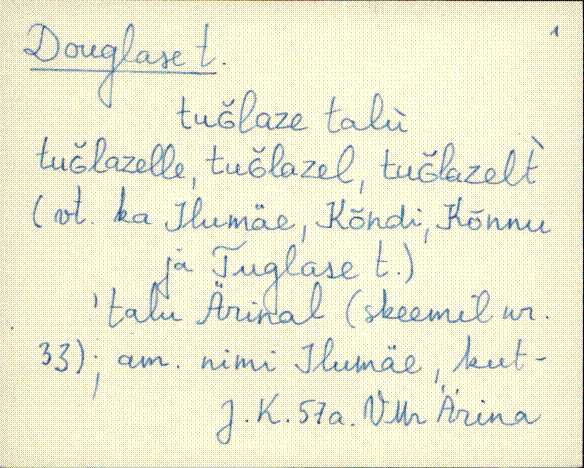 1
Douglase t.
tuǧlaze talù
tuǧlazelle, tuǧlazel, tuǧlazelt̀
(vt. ka Ilumäe, Kõndi, Kõnnu
ja Tuglase t.)
'talu Ärinal (skeemil nr.
33); am. nimi Ilumäe, kut-
J. K. 57a. VMr Ärina